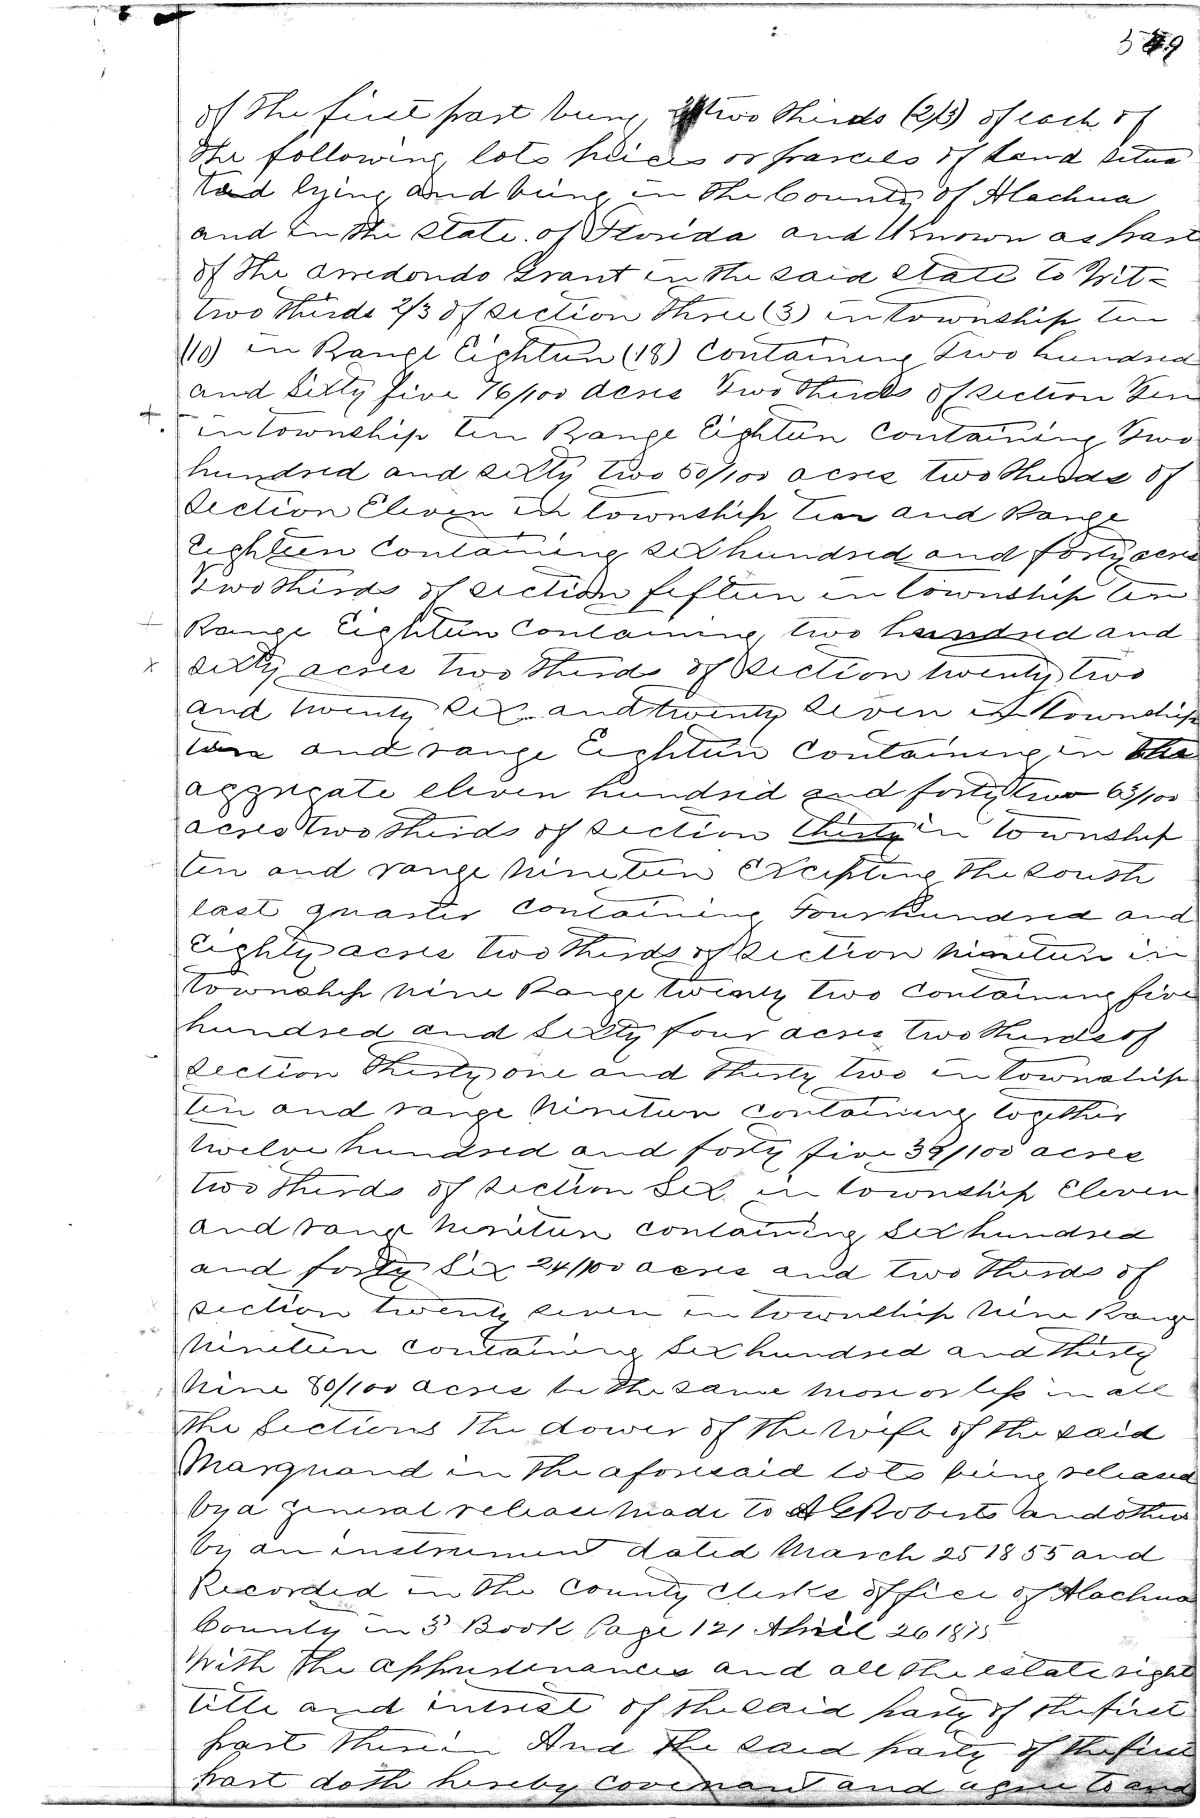 of the first part being two thirds (2/3) of each of
the following lots peices or parcels of land situa
ted lying and being in the County of Alachua
and in the State of Florida and Known as part
of the Arredondo Grant in the said State to Wit=
two thirds 2/3 of Section three (3) in township ten
(10) in Range Eighteen (18) Containing Two hundred
and Sixty five 76/100 acres Two thirds of section Ten
in township ten Range Eighteen Containing Two
hundred and sixty two 50/100 acres two thirds of
Section Eleven in township ten and Range
Eighteen Containing six hundred and forty acres
Two thirds of section fifteen in township ten
Range Eighteen Containing two hundred and
sixty acres two thirds of section twenty two
and twenty six and twenty seven in township
ten and range Eighteen Containing in the
aggregate eleven hundred and forty two 63/100
acres two thirds of section thirty in township
ten and range Nineteen Excepting the south
east quarter containing Four hundred and
Eighty acres two thirds of section nineteen in
township nine Range twenty two containing five
hundred and sixty four acres two thirds of
section thirty one and thirty two in township
ten and range Nineteen containing together
twelve hundred and forty five 39/100 acres
two thirds of section Six in township Eleven
and range Nineteen containing Six hundred
and forty Six 24/100 acres and two thirds of
section twenty seven in township Nine Range
Nineteen containing Six hundred and thirty
Nine 80/100 acres be the same more or less in all
the Sections the dower of the Wife of the said
Marquand in the aforesaid lots being released
by a general release made to A G Roberts and others
by an instrument dated March 25 1855 and
Recorded in the County Clerks office of Alachua
County in 3 Book Page 121 April 26 1875
With the appurtenances and all the estate right
title and intrest of the said party of the first
part therein And the said party of the first
part doth hereby covenant and agree to and